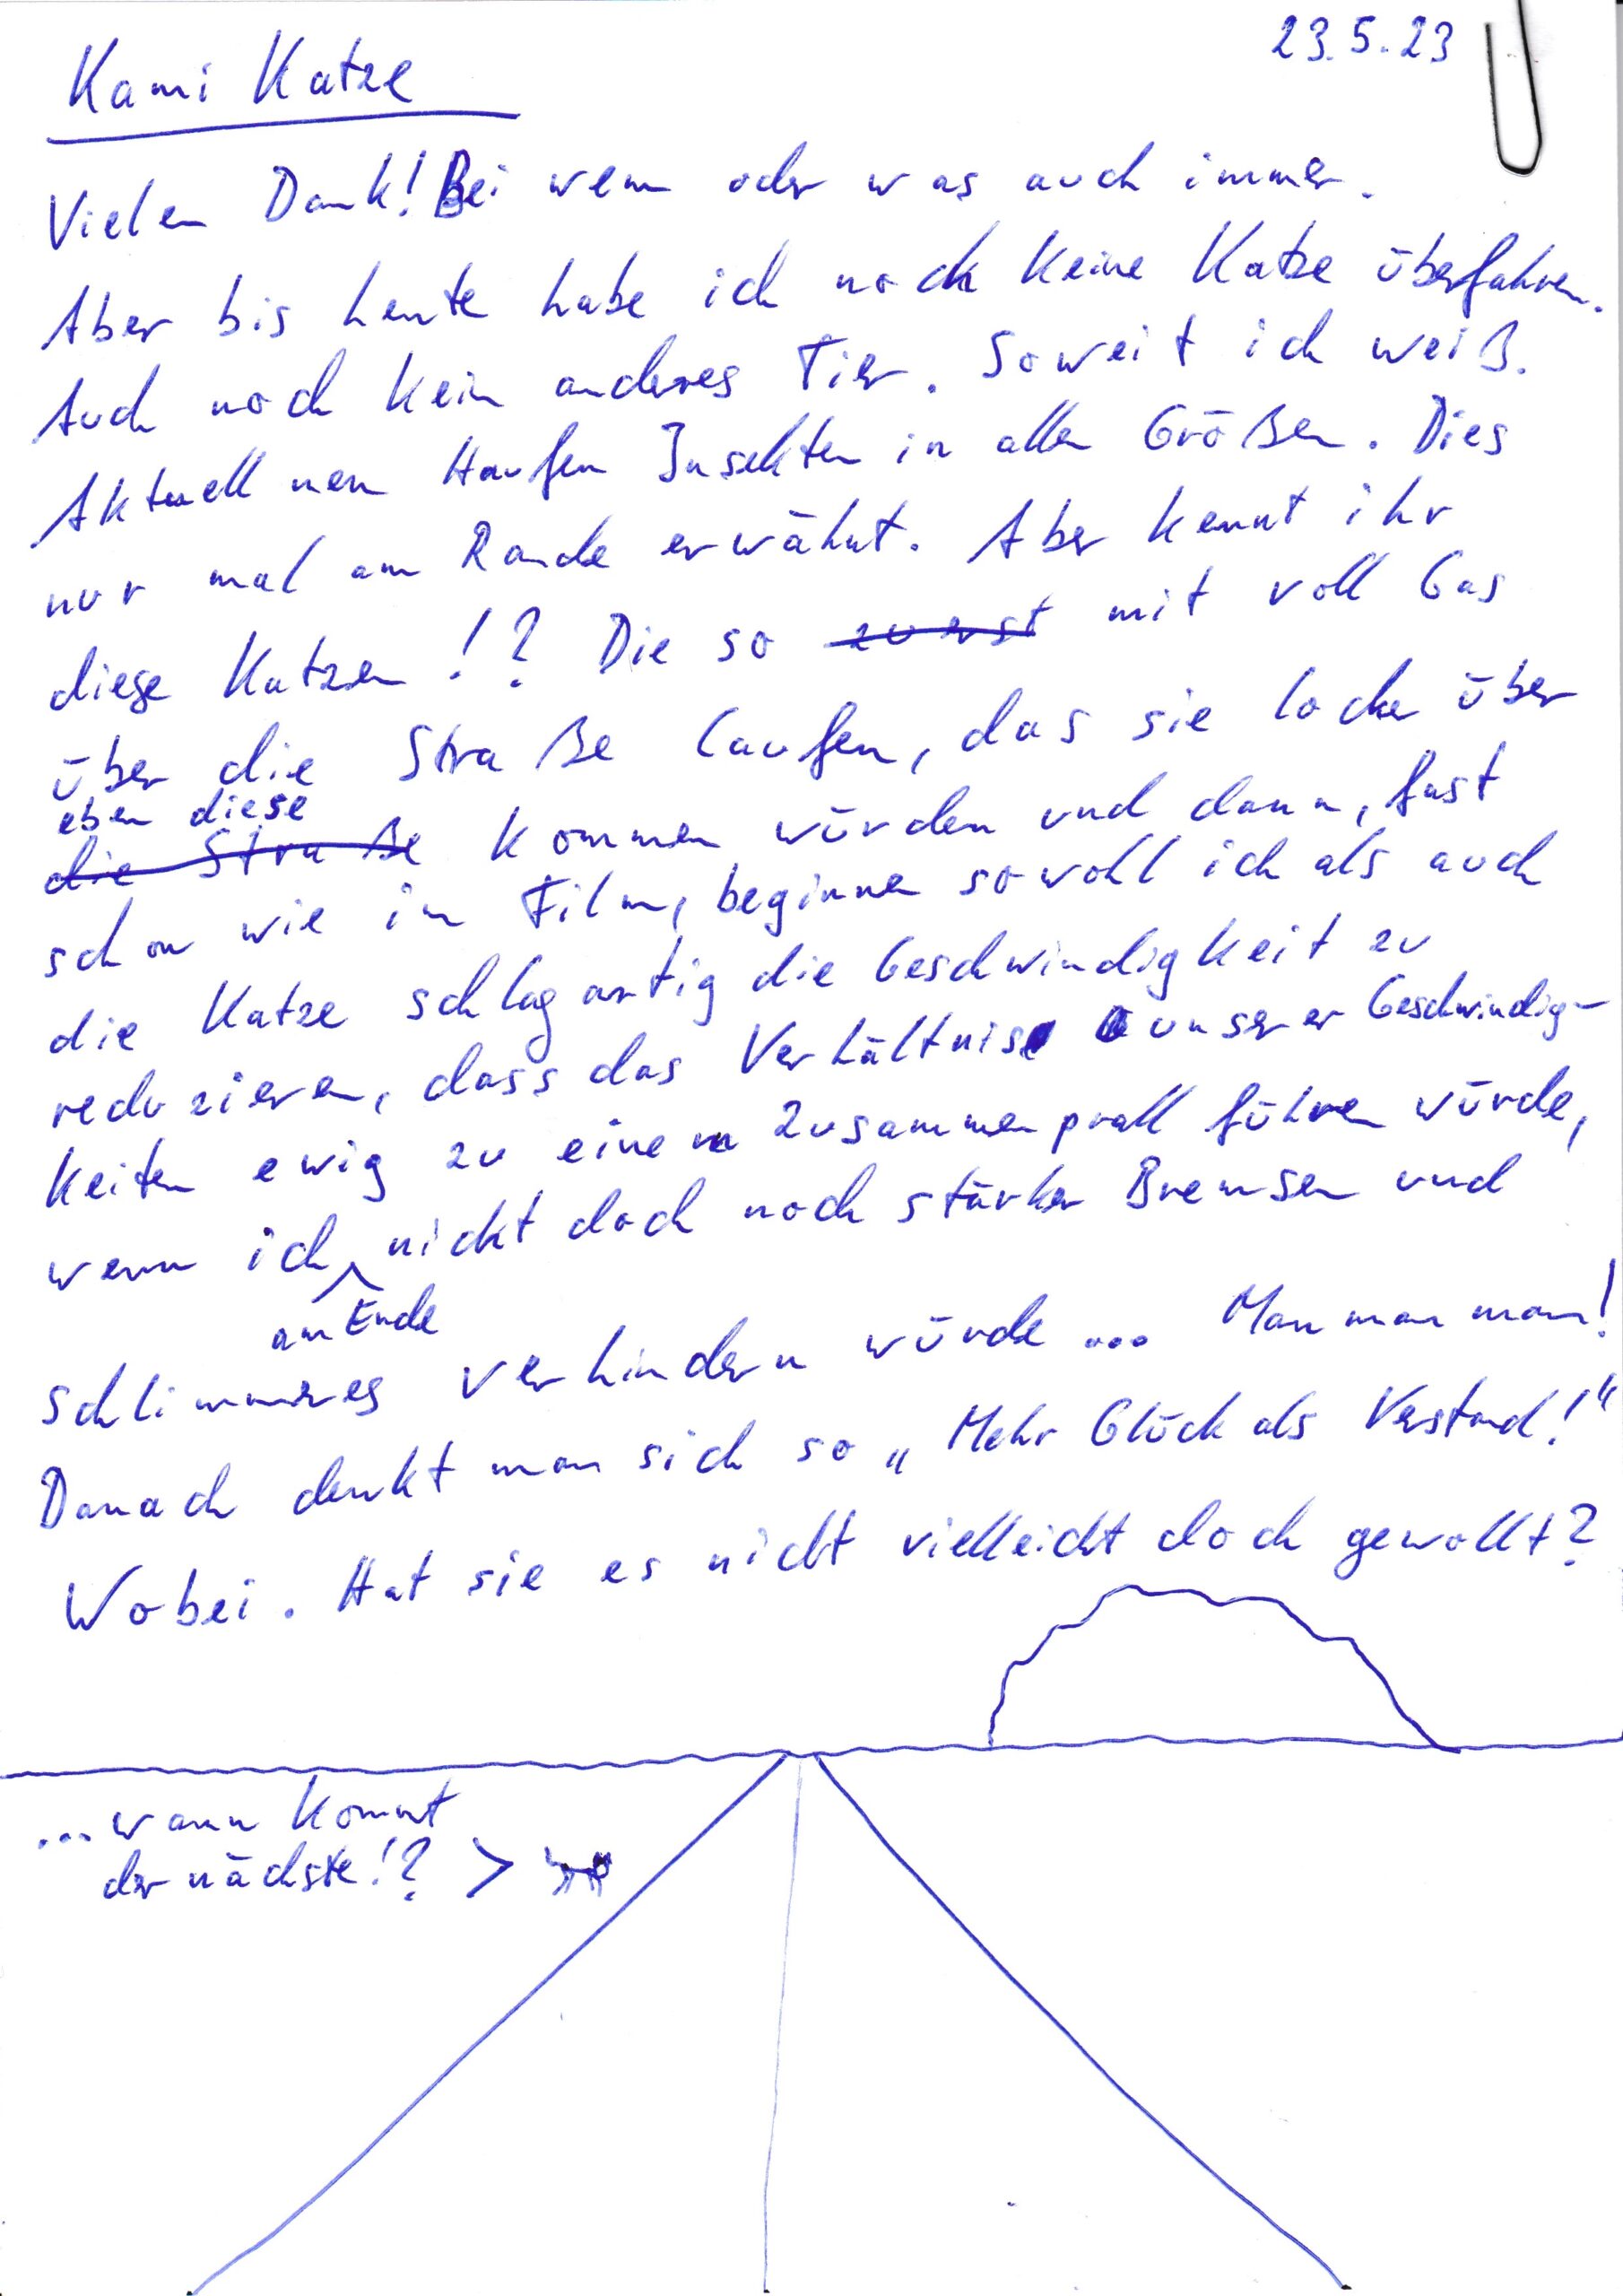 23.5.23
Kami Katze
Vielen Dank! Bei wem oder was auch immer.
Aber bis heute habe ich noch keine Katze überfahren.
Auch noch kein anderes Tier. Soweit ich weiß.
Aktuell nen Haufen Insekten in allen Größen. Dies
nur mal am Rande erwähnt. Aber kennt ihr
diese Katzen!? Die so zuerst mit voll Gas
über die Straße laufen, das sie locker über
eben diese
die Straße kommen würden und dann, fast
schon wie im Film, beginnen sowohl ich als auch
die Katze schlagartig die Geschwindigkeit zu
reduzieren, dass das Verhältnis unserer Geschwindig-
keiten ewig zu einem Zusammenprall führen würde,
wenn ich nicht doch noch stärker Bremsen und
am Ende
schlimmeres verhindern würde ... Man man man!
Danach denkt man sich so „Mehr Glück als Verstand!“
Wobei. Hat sie es nicht vielleicht doch gewollt?
...wann kommt
der nächste!? >